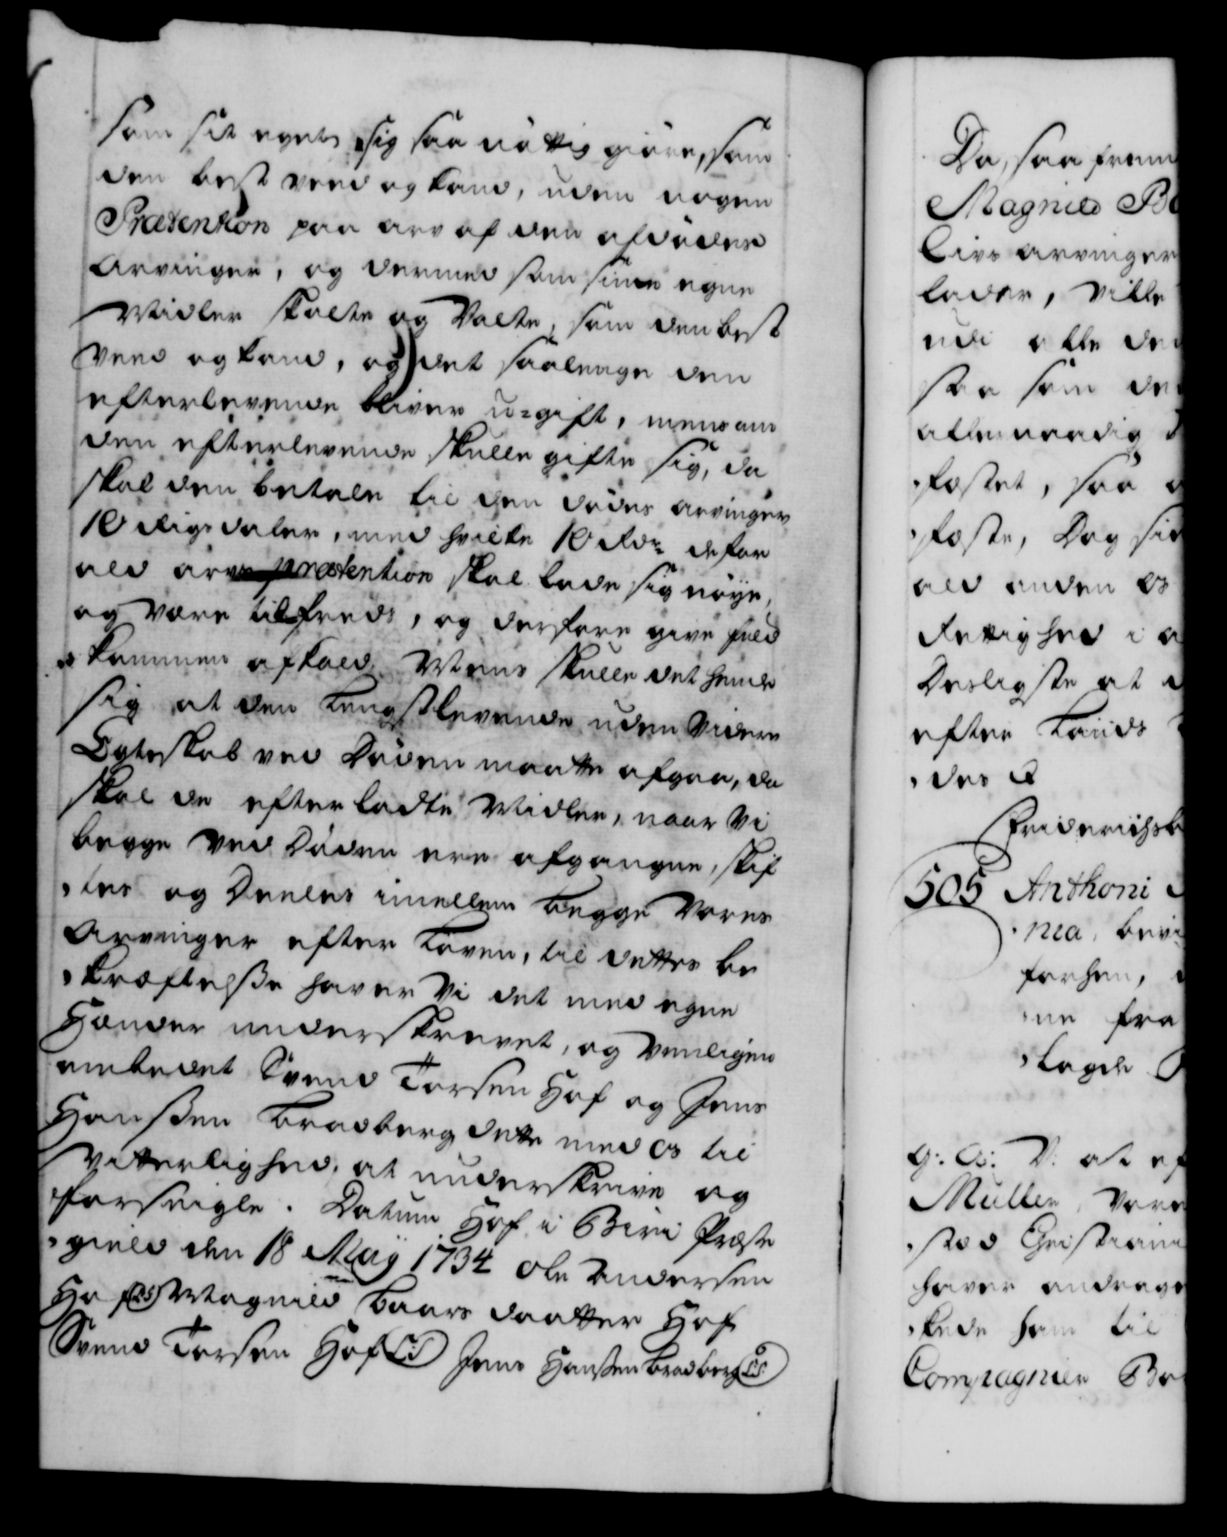 som sit eget sig saa nøttig giøre, som
den best veed og kand, uden nogen
Prætention paa arv af den afdødes
Arvinger, og dermed som sine egne
Midler skalte og Valte, som den best
veed og kand, og det saalenge den
efterlevende bliver u-gift, mens om
den efterlevende skulle gifte sig, da
skal den betale til den dødes arvinger
10 Rigsdaler, med hvilke 10 Rdr de for
ald arvs prætention skal lade sig nøye,
og være tilfreds, og derfore give fuld
kommen afkald. Mens skulle det hende
sig at den Lengstlevende uden Videre
Egteskab ved Døden maatte afgaa, da
skal de efterladte Midler, naar Vi
begge ved Døden ere afgangne, skif
tes og Deeles imellem begge Vores
Arvinger efter Loven, til dettes be
kræftelsse haver Vi det med egne
Hænder underskrevet, og venligen
ombedet Svend Torsen Hof og Jens
Hanssen Bradberg dette med os til
Vitterlighed, at underskrive og
forseigle. Datum Hof i Biri Præste
gield den 18 Maÿ 1734 Ole Andersen
Hof (LS) Magnild Laars daatter Hof
Svend Torsen Hof (LS) Jens Hanssen Bradberg (LS)
Da, saa frem
Magnild
Livs arvinger
lader, ville
udi alle de
saa som de
allernaadig
fæstet, saa
fæste, Dog
ald anden
Rettighed i
Desligste at
efter Lands
des
Friderichsb
505 Anthoni
nea, bevi
forhen,
ne fra
lagde
G: A: V: at ef
Muller, Vore
stæd Christiania
haver andrage
kede ham til
Compagnien